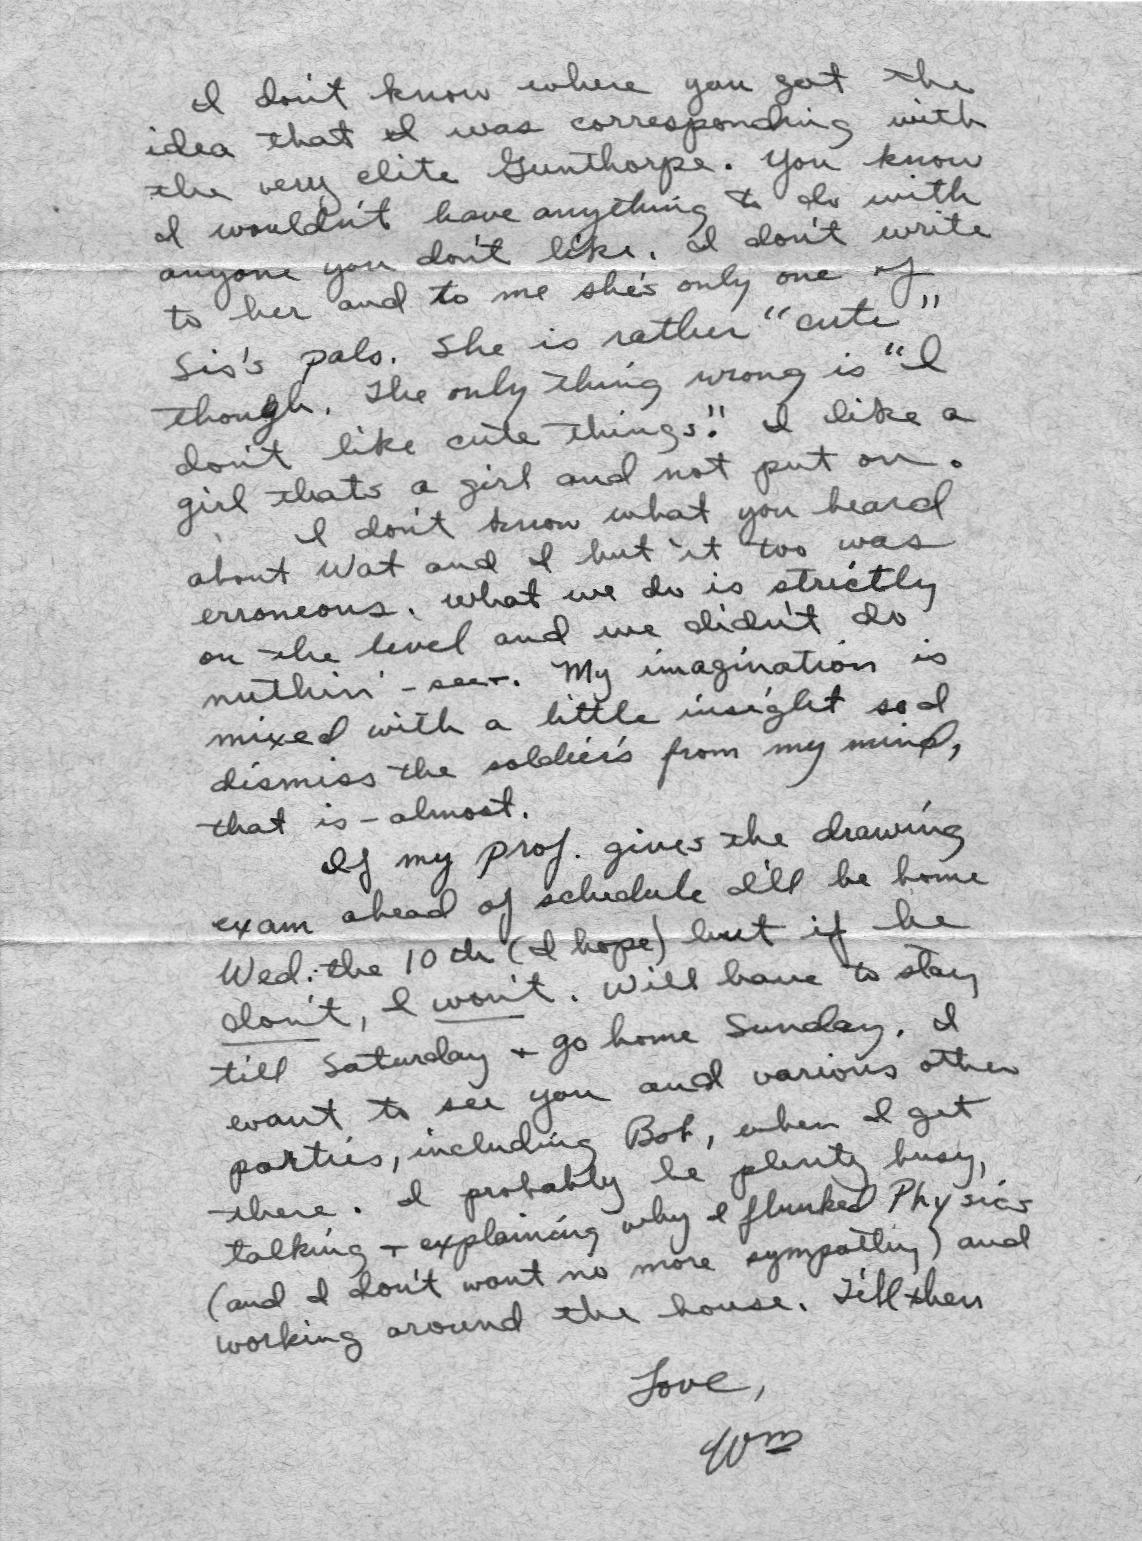 I don't know where you got the
idea that I was corresponding with
the very elite Gunthorpe. You know
I wouldn't have anything to do with
anyone you don't like. I don't write
to her and to me she's only one of
Sis's pals. She is rather "cute"
though. The only thing wrong is "I
don't like cute things"! I like a
girl thats a girl and not put on.
I don't know what you heard
about Wat and I but it too was
erroneous. What we do is strictly
on the level and we didn't do
nuthin' - see-. My imagination is
mixed with a little insight so I
dismiss the soldier's from my mind,
that is - almost.
If my prof. gives the drawing
exam ahead of schedule I'll be home
Wed. the 10th (I hope) but if he
don't, I won't. Will have to stay
till Saturday + go home Sunday. I
want to see you and various other
parties, including Bob, when I get
there. I probably be plenty busy,
talking + explaining why I flunked Physics
(and I don't want no more sympathy) and
working around the house. Till then
Love,
Wm